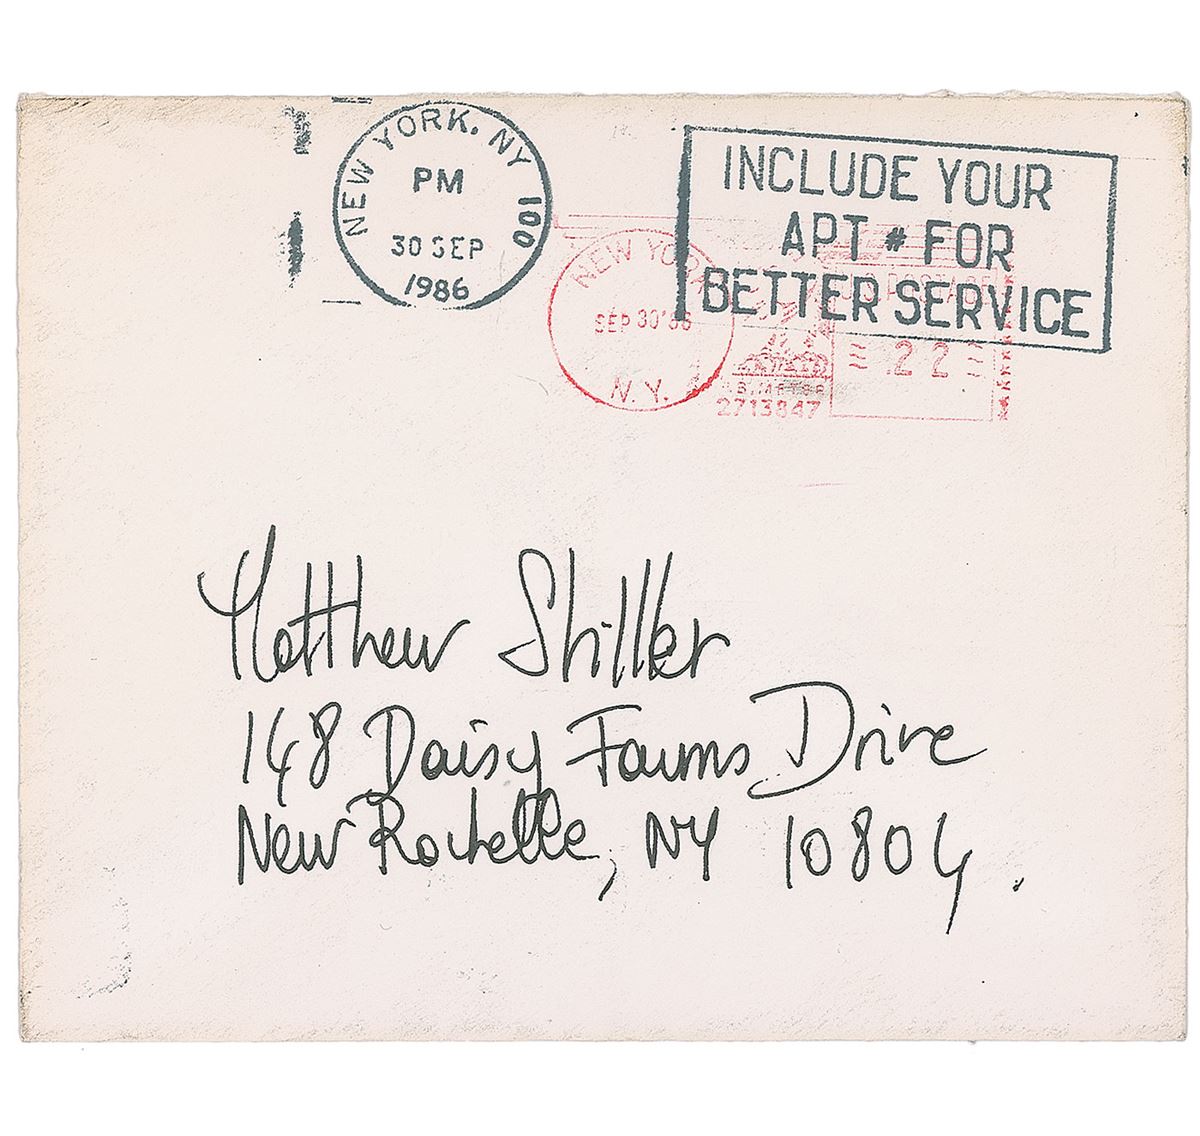 NEW YORK, NY 100
PM
30 SEP
1986
INCLUDE YOUR
APT # FOR
BETTER SERVICE
NEW YORK
SEP 30'86
N.Y.
U.S. POSTAGE
.22
P.B. METER
2713847
Matthew Stiller
148 Daisy Farms Drive
New Rochelle, NY 10804.